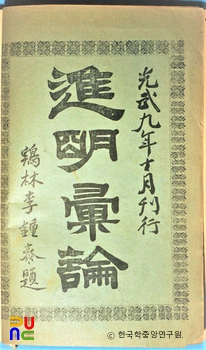 光武九年十月刊行
進明彙論
鷄林李鍾泰題
© 한국학중앙연구원